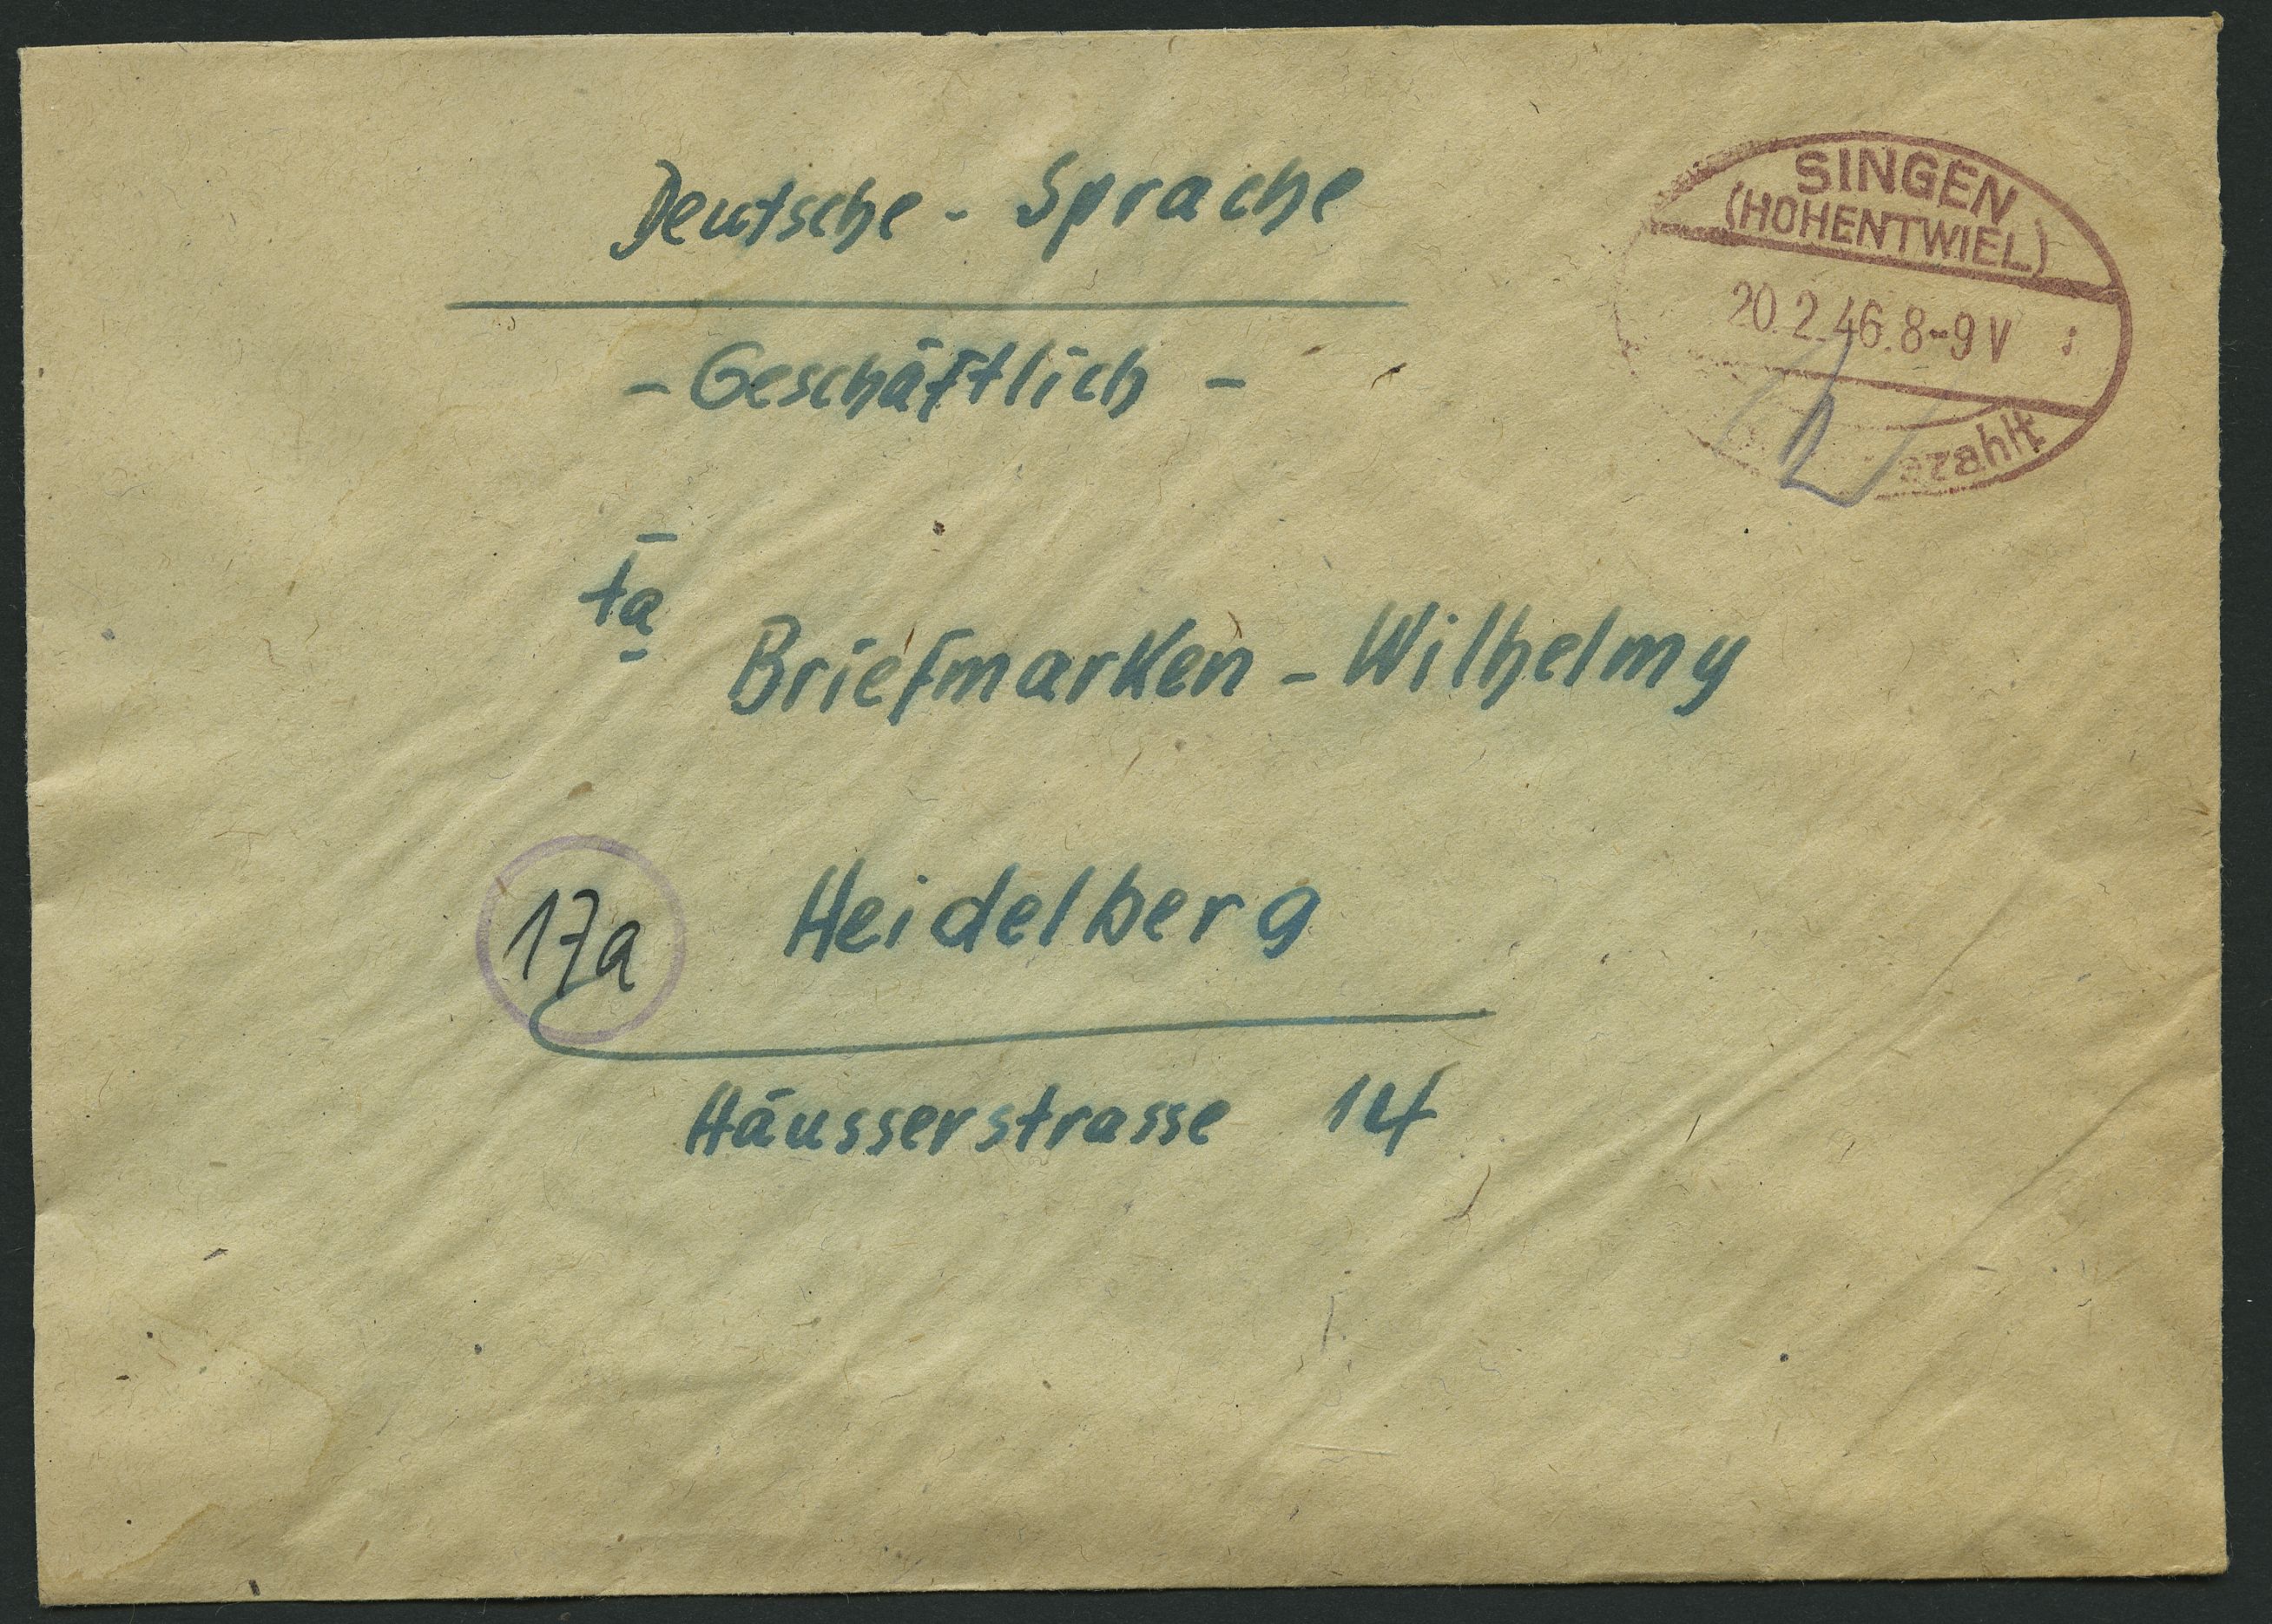 Deutsche - Sprache
- Geschäftlich -
SINGEN
(HOHENTWIEL)
20.2.46.8-9V
ezahlt
Fa
Briefmarken - Wilhelmy
17a Heidelberg
Häusserstrasse 14